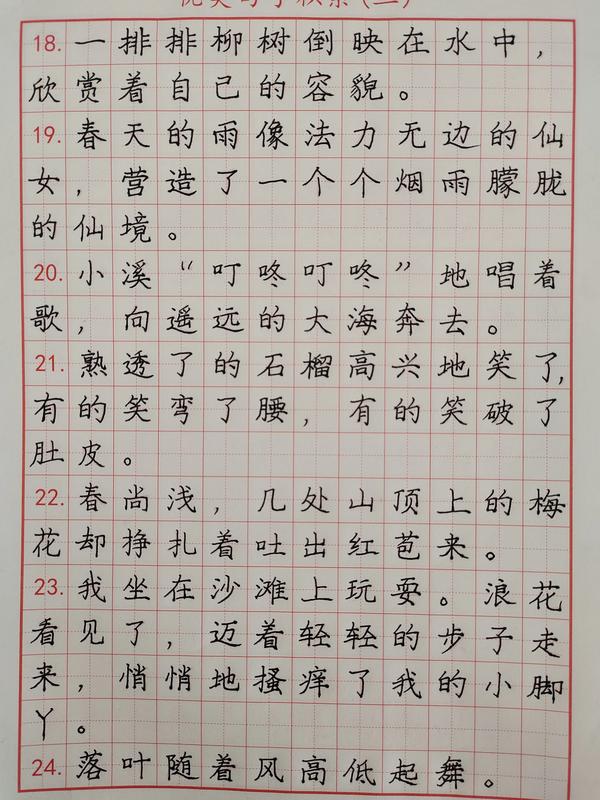 18. 一排排柳树倒映在水中，
欣赏着自己的容貌。
19. 春天的雨像法力无边的仙
女，营造了一个个烟雨朦胧
的仙境。
20. 小溪“叮咚叮咚”地唱着
歌，向遥远的大海奔去。
21. 熟透了的石榴高兴地笑了，
有的笑弯了腰，有的笑破了
肚皮。
22. 春尚浅，几处山顶上的梅
花却挣扎着吐出红芭来。
23. 我坐在沙滩上玩耍。浪花
看见了，迈着轻轻的步子走
来，悄悄地搔痒了我的小脚
丫。
24. 落叶随着风高低起舞。